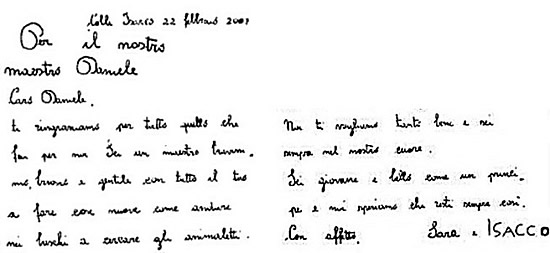 Colle Isarco 22 febbraio 2001
Per il nostro
maestro Daniele
Caro Daniele,
ti ringraziamo per tutto quello che
fai per noi Sei un maestro bravissi-
mo, buono e gentile con tutto il tuo
a fare cose nuove come andare
nei boschi a cercare gli animaletti.
Noi ti vogliamo tanto bene e sei
sempre nel nostro cuore.
Sei giovane e bello come un princi-
pe e noi speriamo che resti sempre così.
Con affetto. Sara e ISACCO